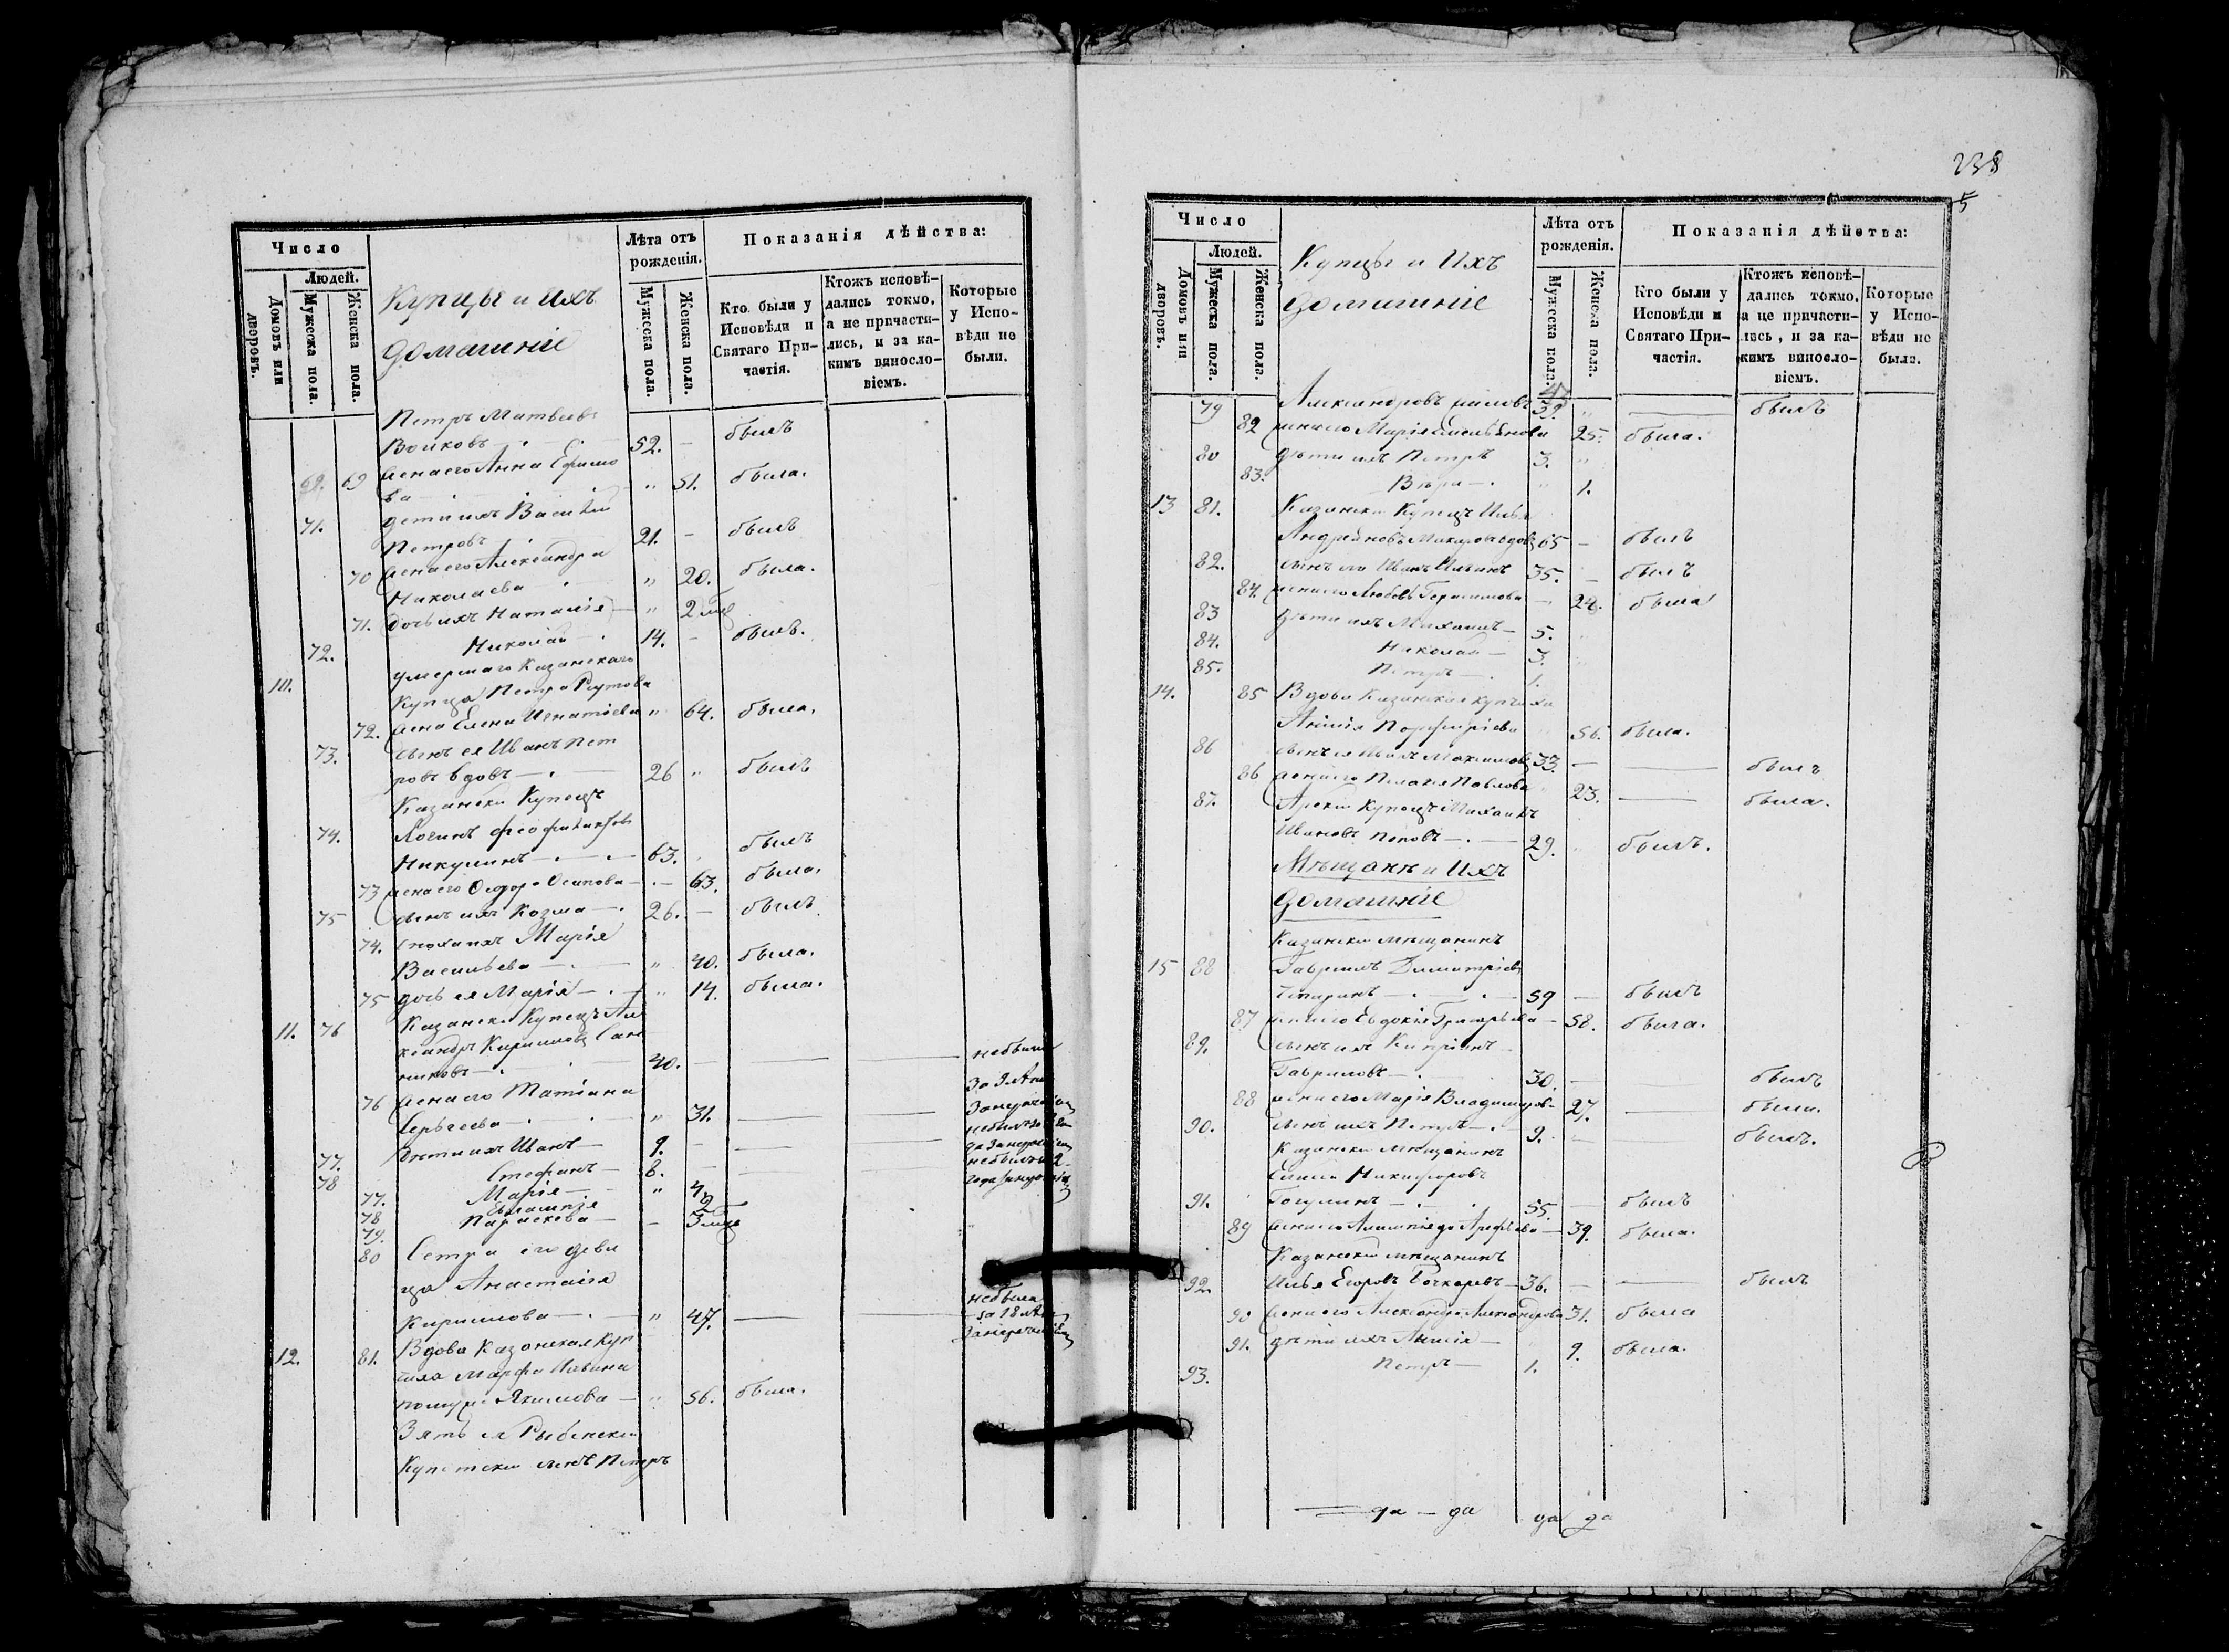 Число
Людей.
Домовъ или дворовъ.
Мужеска пола.
Женска пола.
Купцы и Ихъ
домашніе
Лѣта отъ рожденія.
Мужеска пола.
Женска пола.
Показанія дѣйства:
Кто были у Исповѣди и Святаго Причастія.
Ктожъ исповѣдались токмо, а не причастились, и за какимъ винословіемъ.
Которые у Исповѣди не были.
Петръ Матвеевъ
52. - былъ
69 жена его Анна Ефимо
ва " 51. была.
71. дети ихъ Василій
Петровъ 21. - былъ
70 жена его Александра
Николаева " 20. была.
71. дочь ихъ Наталія - " 2 мц
72. Николай - 14. - былъ.
10. умершаго Казанскаго
Купца Петра
72. жена Елена Игнатіева " 64. была.
73. сынъ ея Иванъ Пет
ровъ вдовъ - 26 " былъ
Казански Купецъ
74. Логинъ Феофилактовъ
Никулинъ - 63. былъ
73 жена его Федора Осипова - 63. была.
75 сынъ ихъ Козма - 26. - былъ
74. сноха ихъ Марія
Васильева - " 40. была.
75 дочь ея Марія - " 14. была.
11. 76 Казански Купецъ Але
ксандръ Кириловъ Сап
жниковъ 40. - небылъ
76 жена его Татіана
Сергеева - " 31.
77. дети ихъ Иванъ - 9. -
78 Стефанъ - 8. -
77. Марія - " 4
78 Евлампія 2
79. Параскева - - 3 мца
80 Сестра его деви
ца Анастасія
Кирилова - " 47. небыла
за 18 лет
12. 81. Вдова Казанская Куп
чиха Марфа Ильина
Якимова - " 56. была.
Зять ея Рыбински
Купетски сынъ Петръ
238
5
Число
Людей.
Домовъ или дворовъ.
Мужеска пола.
Женска пола.
Купцы и Ихъ
домашніе
Лѣта отъ рожденія.
Мужеска пола.
Женска пола.
Показанія дѣйства:
Кто были у Исповѣди и Святаго Причастія.
Ктожъ исповѣдались токмо, а не причастились, и за какимъ винословіемъ.
Которые у Исповѣди не были.
79 Александровъ 32. " былъ
82 жена его Марія 25. была.
80 дети ихъ Петръ 3. "
83. Вѣра - " 1.
13 81. Казански Купецъ Илья
Андреяновъ 65 - былъ
82. сынъ его Иванъ Ильинъ 35. - былъ
84. жена его Любовь Герасимова - 24. была
83 дети ихъ Михаилъ - 5.
84. Николай - 3.
85. Петръ - 1.
14. 85 Вдова Казанская купчиха
Анисія Порфиріева 56. была.
86 сынъ ея Иванъ Максимовъ 33. - былъ
86 жена его Пелагія Павлова 23. была.
87. Арский Купецъ Михаилъ
Ивановъ Поповъ - 29. былъ.
Мѣщане и Ихъ
домашніе
Казански мещанинъ
15 88 Гаврилъ Димитріевъ
59 - былъ
87 жена его Евдокія Григорьева - 58. была.
89. сынъ ихъ Кипріянъ
Гавриловъ - 30. - былъ
88 жена его Марія Владимирова 27. была.
90. сынъ ихъ Петръ - 9. - былъ.
Казански мещанинъ
Елисей Никифоровъ
91. 55. - былъ
89 жена его Арефьева - 39. была.
Казанский мещанинъ
92. Илья Егоровъ Бочкаревъ - 36. - былъ
90 жена его Александра Александрова 31. была
91. дети ихъ Анисія - 9. была.
93. Петръ - 1.